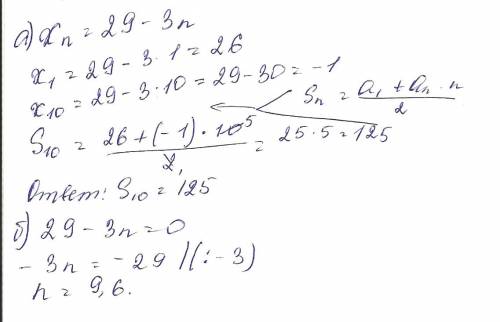 а) xₙ = 29 - 3n
x₁ = 29 - 3 · 1 = 26
x₁₀ = 29 - 3 · 10 = 29 - 30 = -1
Sₙ = (a₁ + aₙ · n) / 2
S₁₀ = (26 + (-1) · 10⁵) / 2, = 25 · 5 = 125
Ответ: S₁₀ = 125
б) 29 - 3n = 0
- 3n = - 29 |(: -3)
n = 9,6.